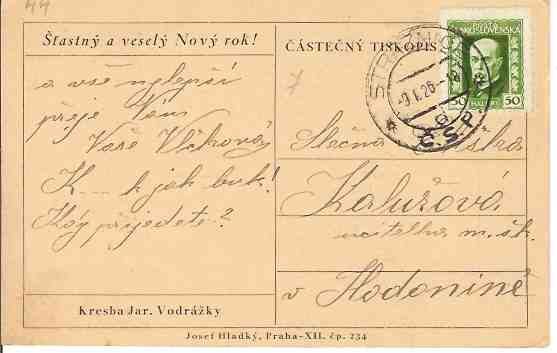 44
Šťastný a veselý Nový rok!
a vše nejlepší
přeje Vám
Vaše Vlčková
K... k jak buk!
Kdy přijedete?
Kresba Jar. Vodrážky
ČÁSTEČNÝ TISKOPIS
7
POŠTA
ČESKOSLOVENSKA
50 HALÉŘŮ 50
Slečna
Kalužová
učitelka m. šk.
v Hodoníně
Josef Hladký, Praha-XII. čp. 234